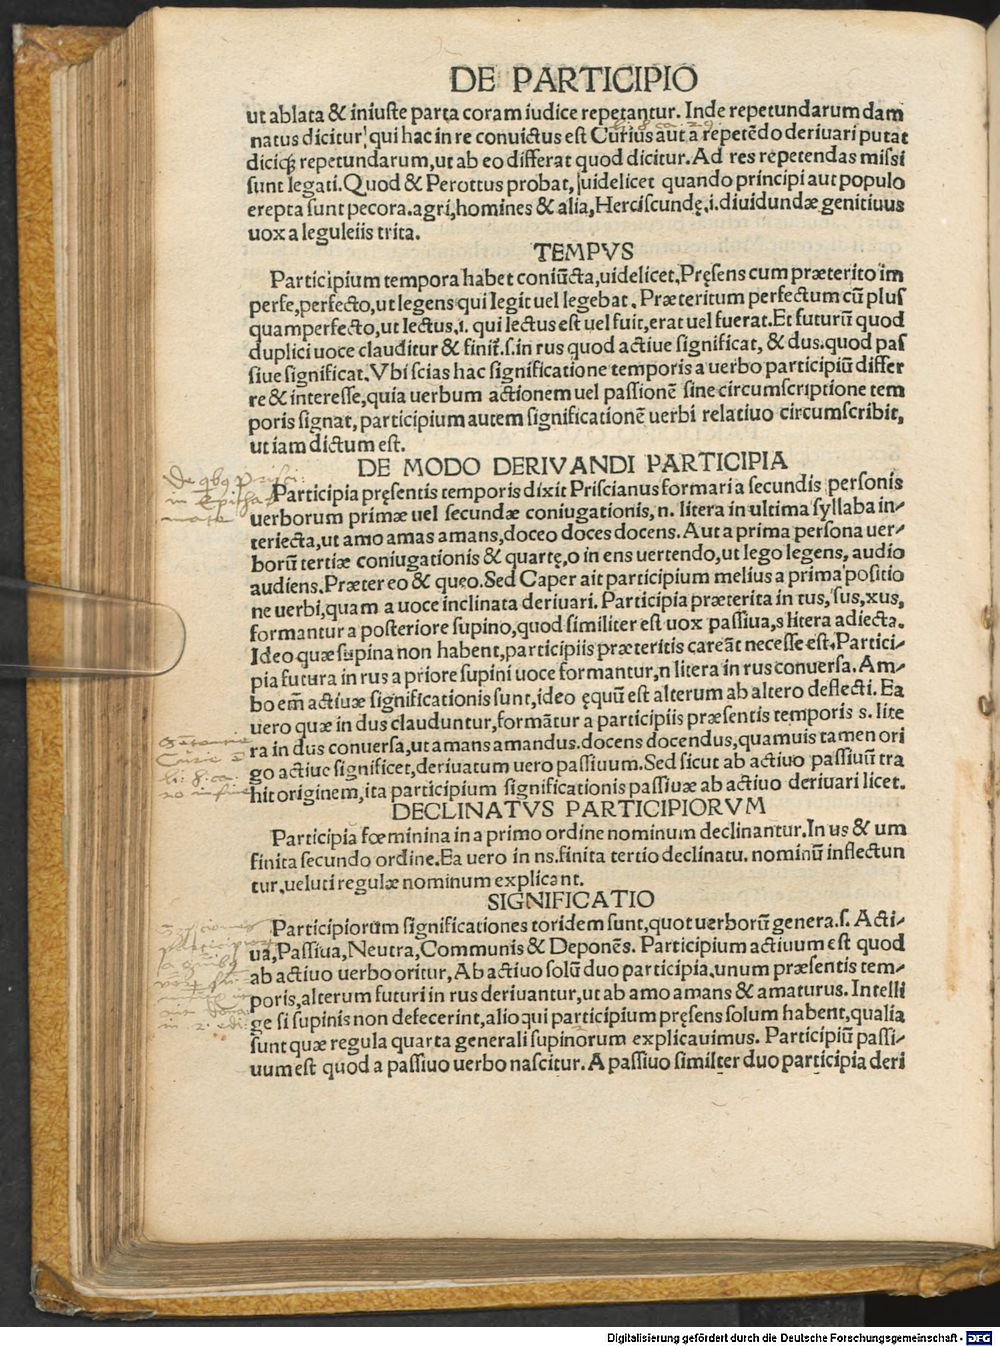 DE PARTICIPIO
ut ablata & iniuste parta coram iudice repetantur. Inde repetundarum dam
natus dicitur, qui hac in re conuictus est Curius aut a repetēdo deriuari putat
diciq; repetundarum, ut ab eo differat quod dicitur. Ad res repetendas missi
sunt legati. Quod & Perottus probat, uidelicet quando principi aut populo
erepta sunt pecora. agri, homines & alia, Herciscundę .i. diuidundæ genitiuus
uox a leguleiis trita.
TEMPVS
Participium tempora habet coniūcta, uidelicet. Pręsens cum præterito im
perfe, perfecto, ut legens qui legit uel legebat. Præteritum perfectum cū plus
quamperfecto, ut lectus .i. qui lectus est uel fuit, erat uel fuerat. Et futurū quod
duplici uoce clauditur & finit̄. s. in rus quod actiue significat, & dus. quod pas
siue significat. Vbi scias hac significatione temporis a uerbo participiū differ
re & interesse, quia uerbum actionem uel passionē sine circumscriptione tem
poris signat, participium autem significationē uerbi relatiuo circumscribit,
ut iam dictum est.
DE MODO DERIVANDI PARTICIPIA
Participia pręsentis temporis dixit Priscianus formari a secundis personis
uerborum primæ uel secundæ coniugationis, n. litera in ultima syllaba in-
teriecta, ut amo amas amans, doceo doces docens. Aut a prima persona uer-
borū tertiæ coniugationis & quartę, o in ens uertendo, ut lego legens, audio
audiens. Præter eo & queo. Sed Caper ait participium melius a prima positio
ne uerbi, quam a uoce inclinata deriuari. Participia præterita in tus, sus, xus,
formantur a posteriore supino, quod similiter est uox passiua, s litera adiecta.
Ideo quæ supina non habent, participiis præteritis careāt necesse est. Partici-
pia futura in rus a priore supini uoce formantur, n litera in rus conuersa. Am-
bo em̄ actiuæ significationis sunt, ideo ęquū est alterum ab altero deflecti. Ea
uero quæ in dus clauduntur, formātur a participiis præsentis temporis s. lite
ra in dus conuersa, ut amans amandus. docens docendus, quamuis tamen ori
go actiue significet, deriuatum uero passiuum. Sed sicut ab actiuo passiuū tra
hit originem, ita participium significationis passiuæ ab actiuo deriuari licet.
DECLINATVS PARTICIPIORVM
Participia fœminina in a primo ordine nominum declinantur. In us & um
finita secundo ordine. Ea uero in ns. finita tertio declinatu. nominū inflectun
tur, ueluti regulæ nominum explicant.
SIGNIFICATIO
Participiorum significationes totidem sunt, quot uerborū genera. s. Acti-
ua, Passiua, Neutra, Communis & Deponēs. Participium actiuum est quod
ab actiuo uerbo oritur, Ab actiuo solū duo participia. unum præsentis tem-
poris, alterum futuri in rus deriuantur, ut ab amo amans & amaturus. Intelli
ge si supinis non defecerint, alioqui participium pręsens solum habent, qualia
sunt quæ regula quarta generali supinorum explicauimus. Participiū passi-
uum est quod a passiuo uerbo nascitur. A passiuo similiter duo participia deri
Digitalisierung gefördert durch die Deutsche Forschungsgemeinschaft - DFG